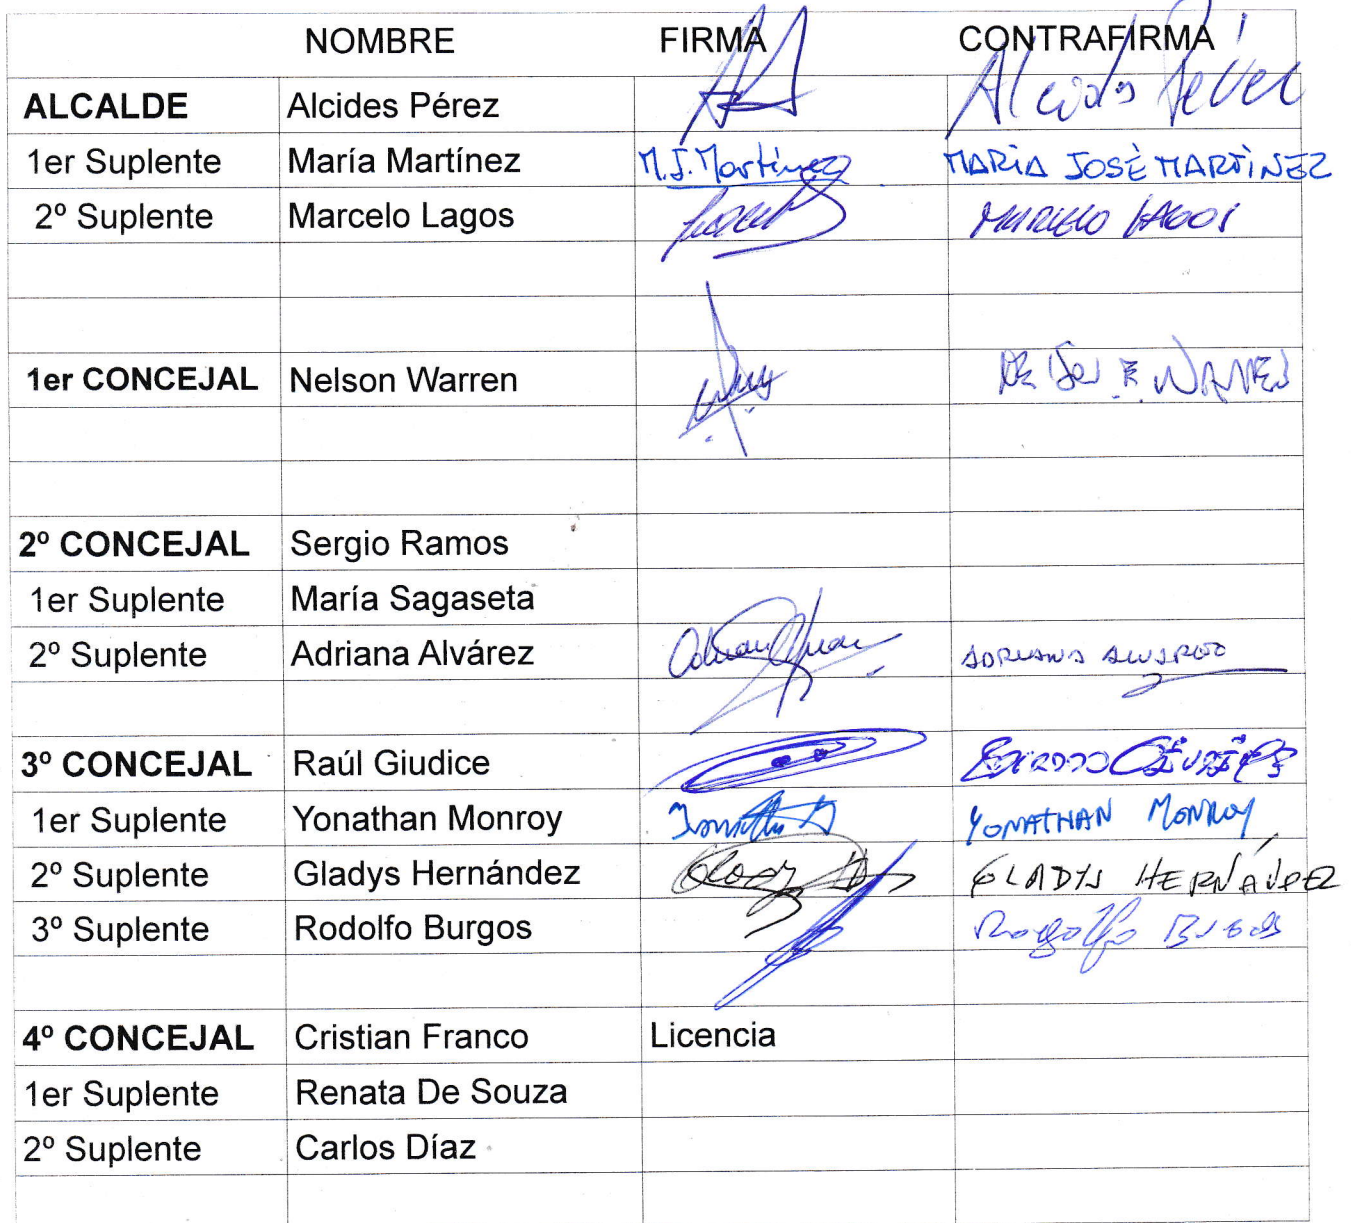 NOMBRE FIRMA CONTRAFIRMA
ALCALDE Alcides Pérez Alcides Pérez
1er Suplente María Martínez M.J. Martínez MARÍA JOSÉ MARTÍNEZ
2º Suplente Marcelo Lagos MARCELO LAGOS
1er CONCEJAL Nelson Warren
2º CONCEJAL Sergio Ramos
1er Suplente María Sagaseta
2º Suplente Adriana Alvárez ADRIANA ALVAREZ
3º CONCEJAL Raúl Giudice
1er Suplente Yonathan Monroy YONATHAN MONROY
2º Suplente Gladys Hernández GLADYS HERNÁNDEZ
3º Suplente Rodolfo Burgos Rodolfo Burgos
4º CONCEJAL Cristian Franco Licencia
1er Suplente Renata De Souza
2º Suplente Carlos Díaz